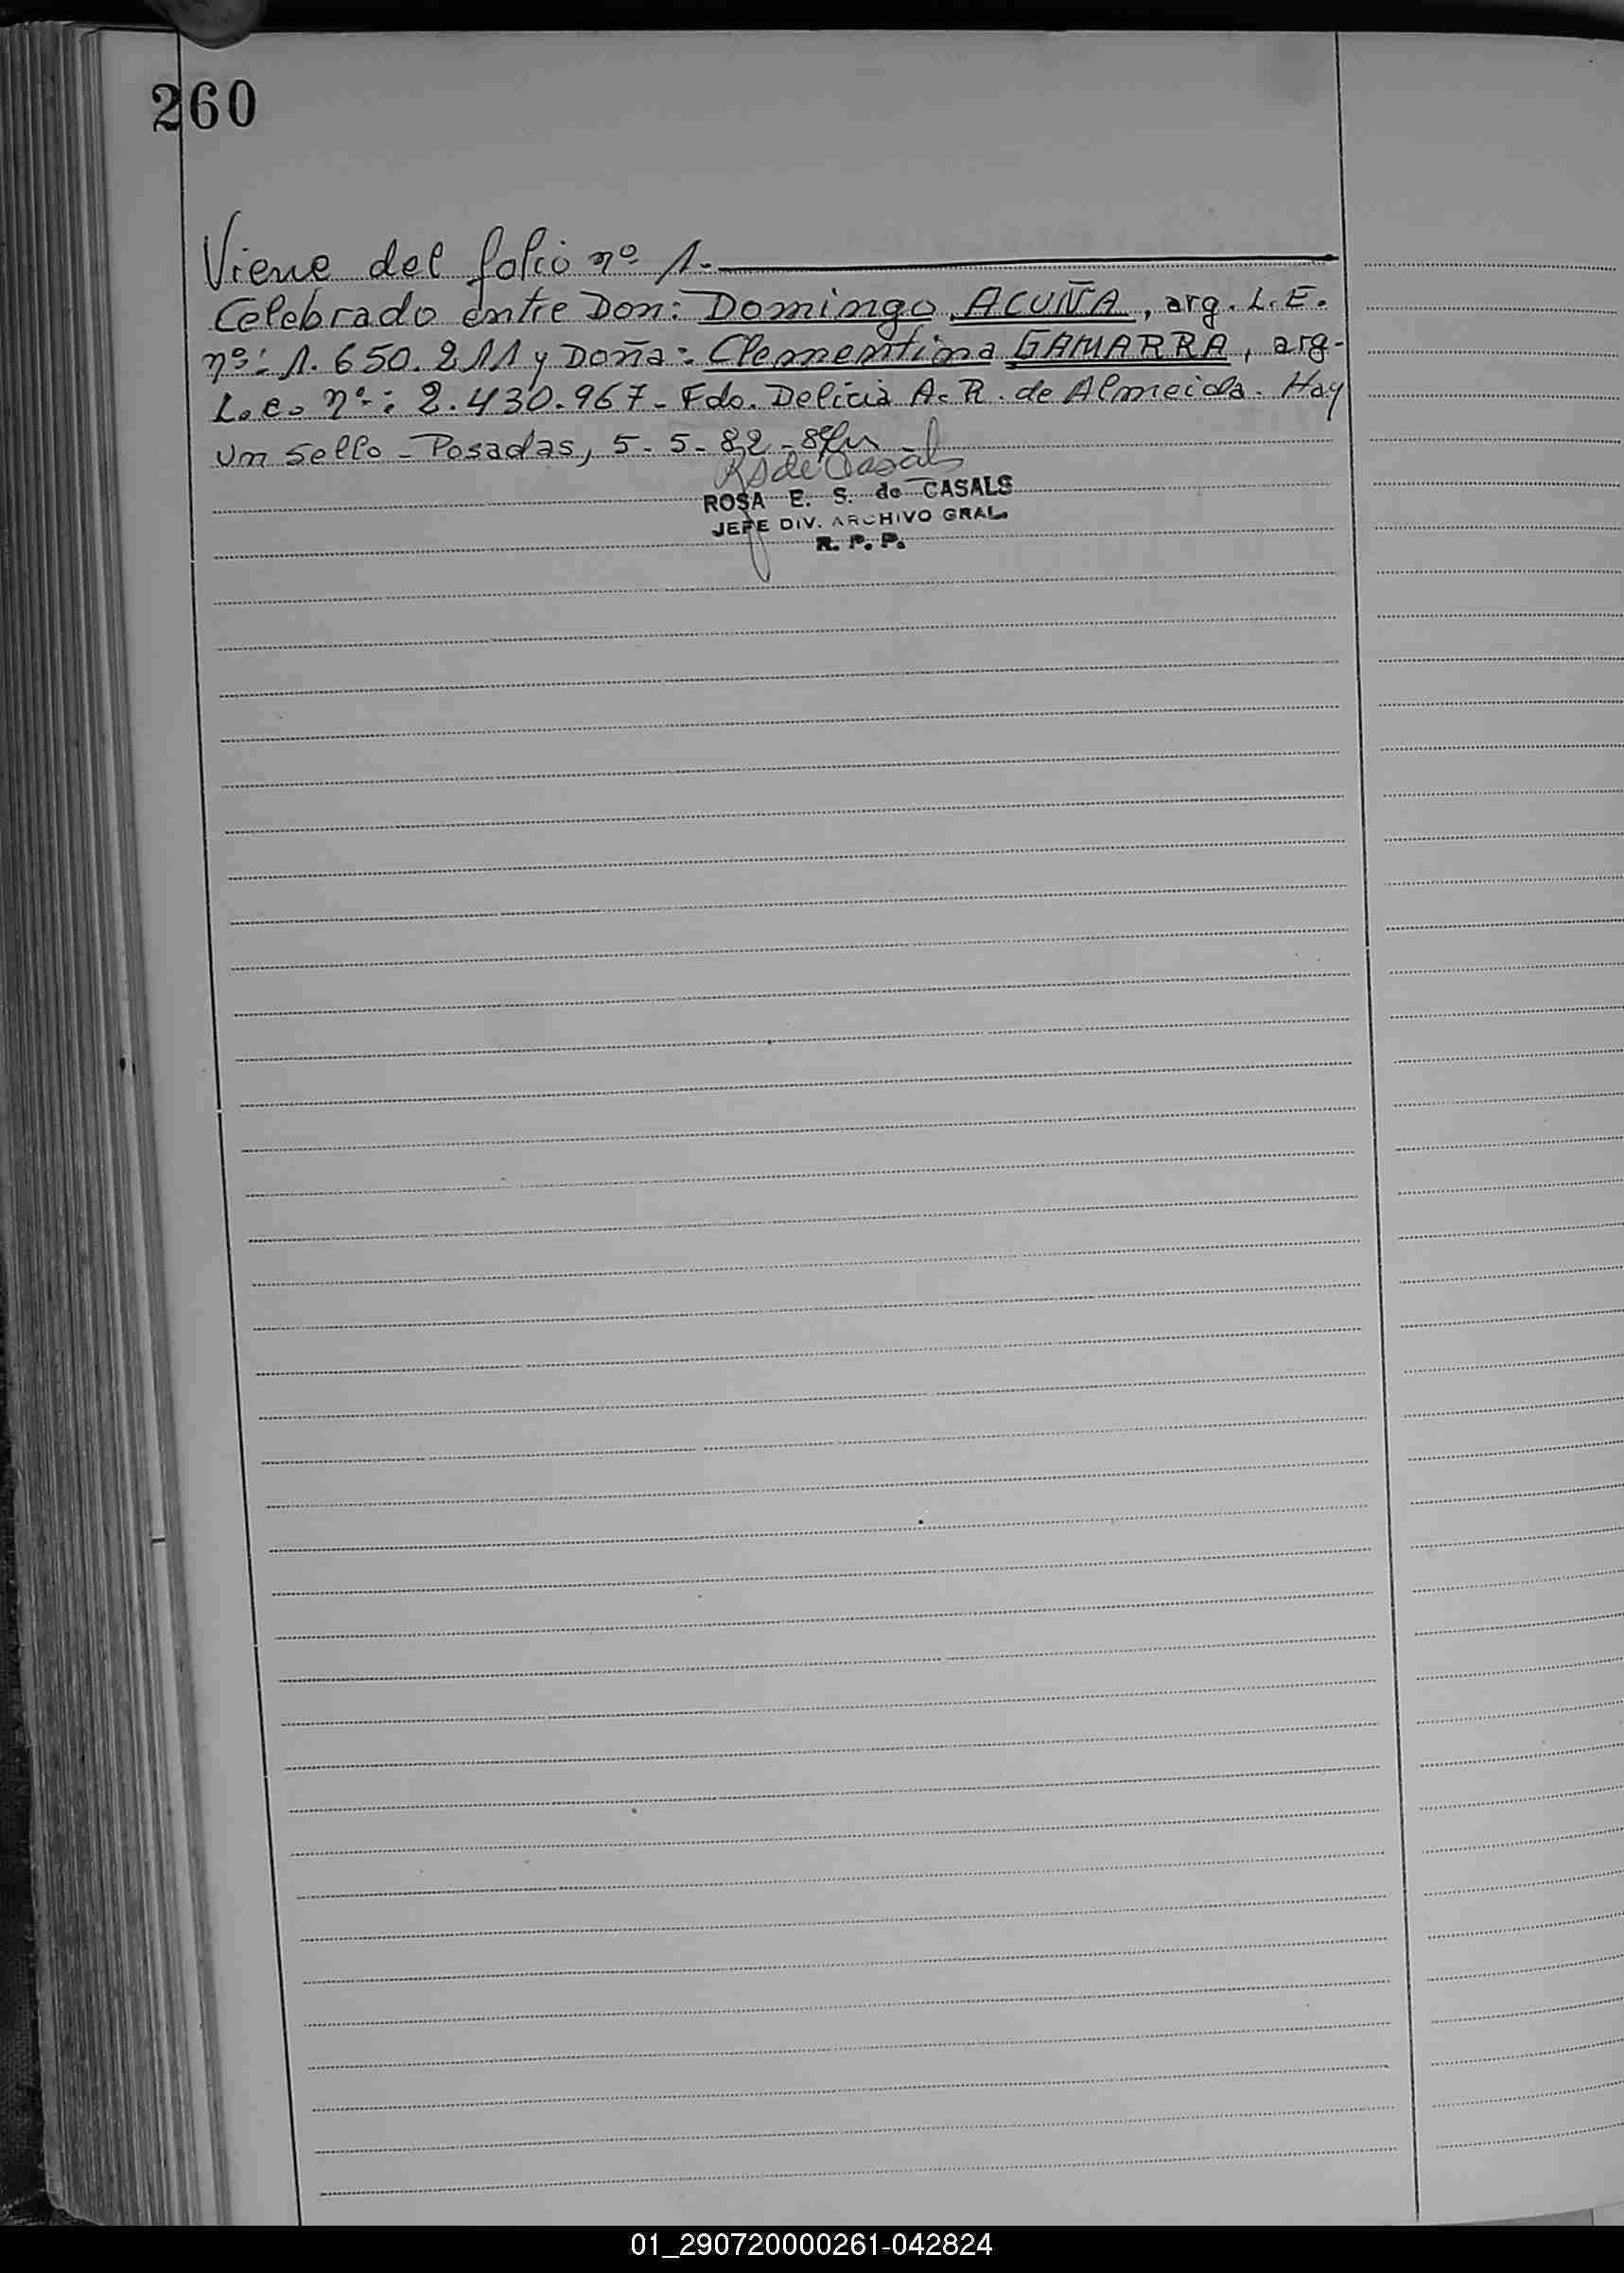 260
Viene del folio nº 1.-
Celebrado entre Don: Domingo ACUÑA, arg. L.E.
nº: 1.650.211 y Doña: Clementina GAMARRA, arg-
L.C. nº: 2.430.967- Fdo. Delicia A. R. de Almeida. Hay
un sello - Posadas, 5-5-82-
RS de Casals
ROSA E. S. de CASALS
JEFE DIV. ARCHIVO GRAL.
R. P. P.
01_290720000261-042824